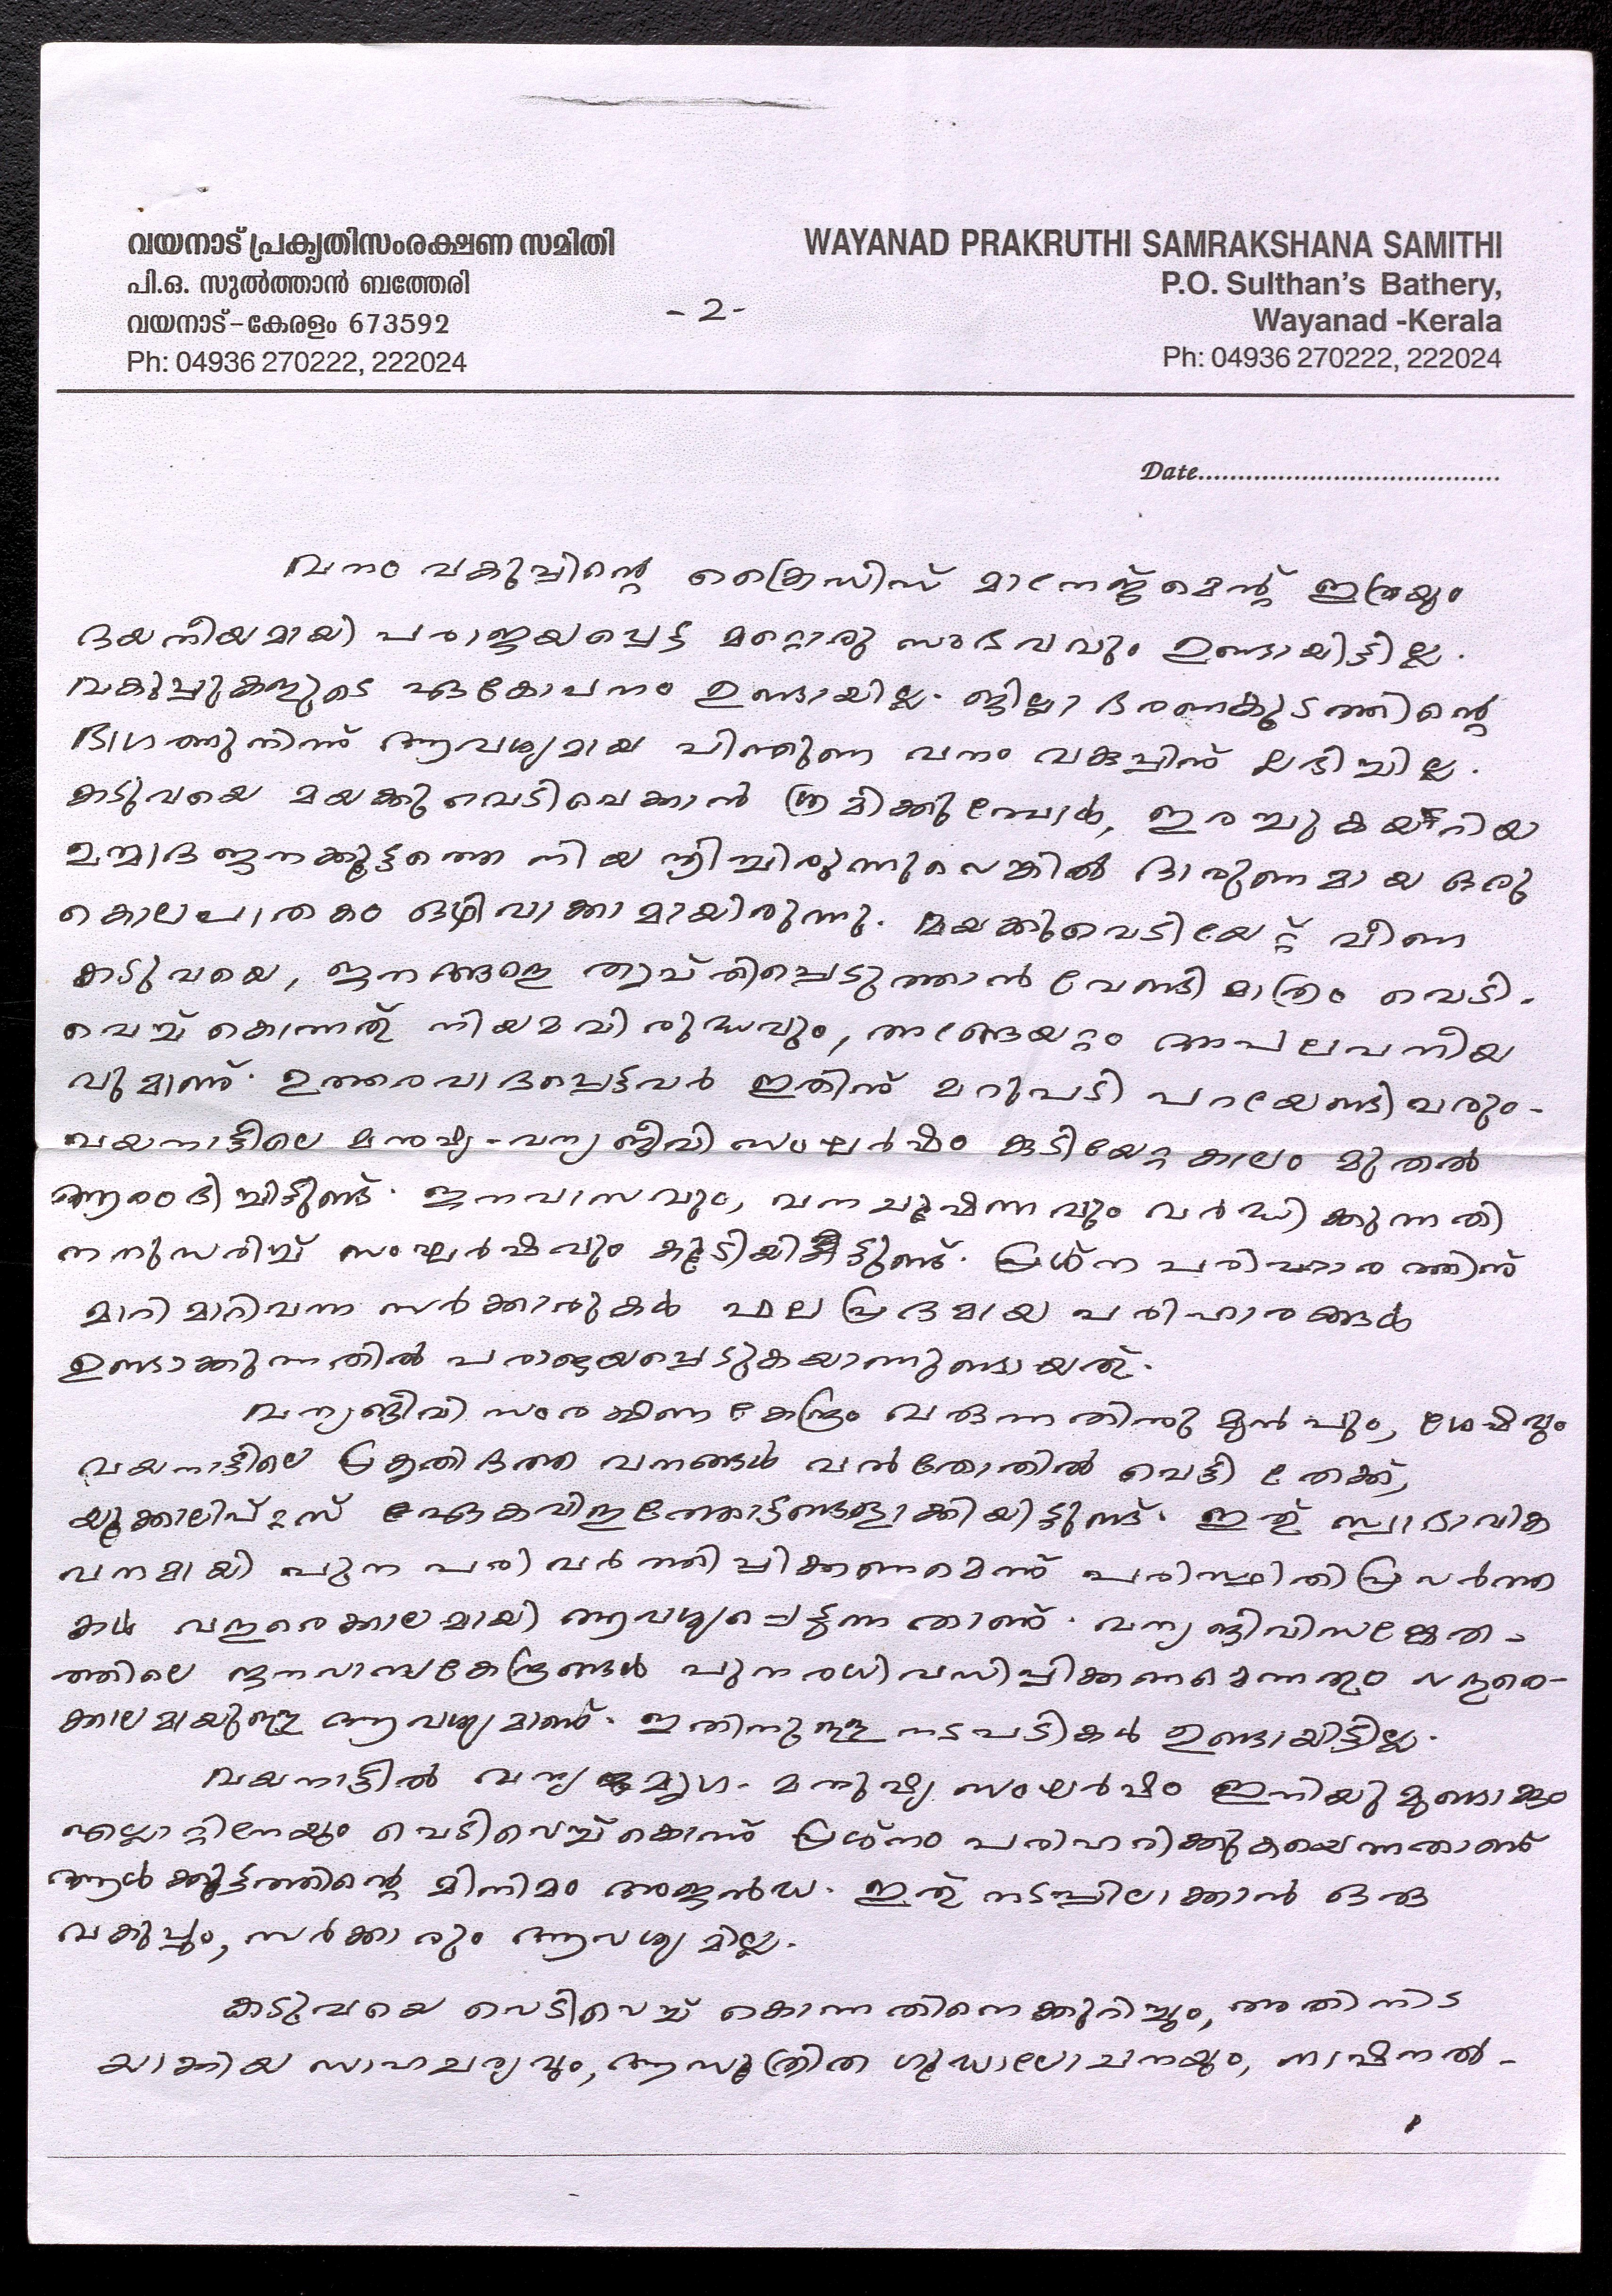 വയനാട് പ്രകൃതിസംരക്ഷണ സമിതി
പി.ഒ. സുൽത്താൻ ബത്തേരി
വയനാട്-കേരളം 673592
Ph: 04936 270222, 222024
-2-
WAYANAD PRAKRUTHI SAMRAKSHANA SAMITHI
P.O. Sulthan's Bathery,
Wayanad -Kerala
Ph: 04936 270222, 222024
Date......................................
വനം വകുപ്പിന്റെ ക്രൈസിസ് മാനേജ്മെന്റ് ഇത്രയും
ദയനീയമായി പരാജയപ്പെട്ട മറ്റൊരു സംഭവവും ഉണ്ടായിട്ടില്ല.
വകുപ്പുകളുടെ ഏകോപനം ഉണ്ടായില്ല. ജില്ലാ ഭരണകൂടത്തിന്റെ
ഭാഗത്തുനിന്ന് ആവശ്യമായ പിന്തുണ വനം വകുപ്പിന് ലഭിച്ചില്ല.
കടുവയെ മയക്കുവെടിവെക്കാൻ ശ്രമിക്കുമ്പോൾ, ഇരച്ചുകയറിയ
ഉന്മാദ ജനക്കൂട്ടത്തെ നിയന്ത്രിച്ചിരുന്നുവെങ്കിൽ ദാരുണമായ ഒരു
കൊലപാതകം ഒഴിവാക്കാമായിരുന്നു. മയക്കുവെടിയേറ്റ് വീണ
കടുവയെ, ജനങ്ങളെ തൃപ്തിപ്പെടുത്താൻ വേണ്ടി മാത്രം വെടി-
വെച്ച് കൊന്നത് നിയമവിരുദ്ധവും, അങ്ങേയറ്റം അപലപനീയ
വുമാണ്. ഉത്തരവാദപ്പെട്ടവർ ഇതിന് മറുപടി പറയേണ്ടിവരും-
വയനാട്ടിലെ മനുഷ്യ-വന്യജീവി സംഘർഷം കുടിയേറ്റകാലം മുതൽ
ആരംഭിച്ചിട്ടുണ്ട്. ജനവാസവും, വനചൂഷണവും വർദ്ധിക്കുന്നതി
നനുസരിച്ച് സംഘർഷവും കൂടിയിട്ടുണ്ട്. പ്രശ്ന പരിഹാരത്തിന്
മാറിമാറിവന്ന സർക്കാരുകൾ ഫലപ്രദമായ പരിഹാരങ്ങൾ
ഉണ്ടാക്കുന്നതിൽ പരാജയപ്പെടുകയാന്നുണ്ടായത്.
വന്യജീവി സംരക്ഷണ കേന്ദ്രം വരുന്നതിനു മുൻപും, ശേഷവും
വയനാട്ടിലെ പ്രകൃതിദത്ത വനങ്ങൾ വൻതോതിൽ വെട്ടി തേക്ക്,
യൂക്കാലിപ്റ്റസ് ഏകവിളത്തോട്ടങ്ങളാക്കിയിട്ടുണ്ട്. ഇത് സ്വാഭാവിക
വനമായി പുന പരിവർത്തിപ്പിക്കണമെന്ന് പരിസ്ഥിതിപ്രവർത്ത
കർ വളരെക്കാലമായി ആവശ്യപ്പെടുന്നതാണ്. വന്യജീവിസങ്കേത-
ത്തിലെ ജനവാസകേന്ദ്രങ്ങൾ പുനരധിവസിപ്പിക്കണമെന്നതും വളരെ-
ക്കാലമായുള്ള ആവശ്യമാണ്. ഇതിനുള്ള നടപടികൾ ഉണ്ടായിട്ടില്ല.
വയനാട്ടിൽ വന്യമൃഗ-മനുഷ്യ സംഘർഷം ഇനിയുമുണ്ടാകും
എല്ലാറ്റിനേയും വെടിവെച്ച്കൊന്ന് പ്രശ്നം പരിഹരിക്കുകയെന്നതാണ്
ആൾക്കൂട്ടത്തിന്റെ മിനിമം അജൻഡ. ഇത് നടപ്പിലാക്കാൻ ഒരു
വകുപ്പും, സർക്കാരും ആവശ്യമില്ല.
കടുവയെ വെടിവെച്ച് കൊന്നതിനെക്കുറിച്ചും, അതിനിട
യാക്കിയ സാഹചര്യവും, ആസൂത്രിത ഗൂഢാലോചനയും, നാഷനൽ-